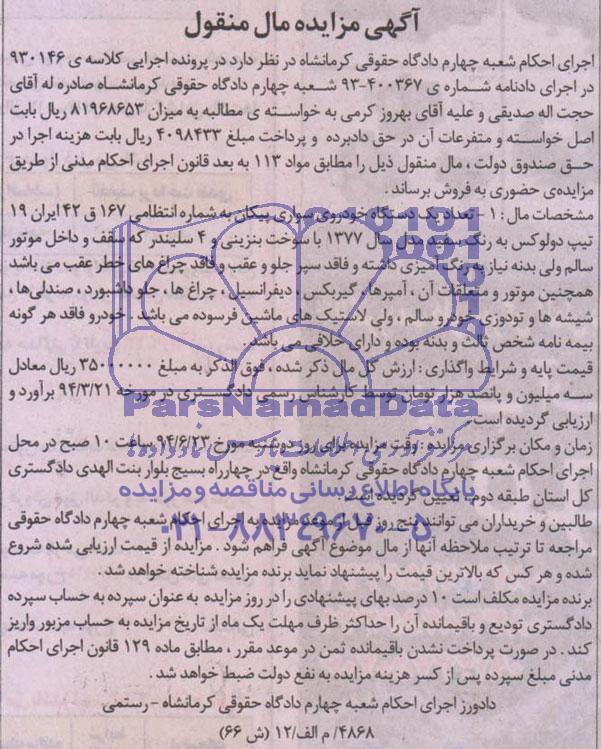 آگهی مزایده مال منقول
اجرای احکام شعبه چهارم دادگاه حقوقی کرمانشاه در نظر دارد در پرونده اجرایی کلاسه ی ۹۳۰۱۴۶
در اجرای دادنامه شماره ی ۴۰۰۳۶۷-۹۳ شعبه چهارم دادگاه حقوقی کرمانشاه صادره له آقای
حجت اله صدیقی و علیه آقای بهروز کرمی به خواسته ی مطالبه به میزان ۸۱۹۶۸۶۵۳ ریال بابت
اصل خواسته و متفرعات آن در حق دادبرده و پرداخت مبلغ ۴۰۹۸۴۳۳ ریال بابت هزینه اجرا در
حق صندوق دولت ، مال منقول ذیل را مطابق مواد ۱۱۳ به بعد قانون اجرای احکام مدنی از طریق
مزایده‌ی حضوری به فروش برساند .
مشخصات مال : ۱ – تعداد یک دستگاه خودروی سواری پیکان به شماره انتظامی ۱۶۷ ق ۴۲ ایران ۱۹
تیپ دولوکس به رنگ سفید مدل سال ۱۳۷۷ با سوخت بنزینی و ۴ سلیندر که سقف و داخل موتور
سالم ولی بدنه نیاز به رنگ آمیزی داشته و فاقد سپر جلو و عقب و فاقد چراغ های خطر عقب می باشد
همچنین موتور و متعلقات آن ، آمپرها ، گیربکس ، دیفرانسیل ، چراغ ها ، جلو داشبورد ، صندلی‌ها ،
شیشه ها و تودوزی خودرو سالم ، ولی لاستیک های ماشین فرسوده می باشد . خودرو فاقد هر گونه
بیمه نامه شخص ثالث و بدنه بوده و دارای خلافی می باشد .
قیمت پایه و شرایط واگذاری : ارزش کل مال ذکر شده ، فوق الذکر به مبلغ ۳۵۰۰۰۰۰۰ ریال معادل
سه میلیون و پانصد هزار تومان توسط کارشناس رسمی دادگستری در مورخه ۹۴/۳/۲۱ برآورد و
ارزیابی گردیده است .
ParsNamadData
زمان و مکان برگزاری مزایده : وقت مزایده برای روز دوشنبه مورخ ۹۴/۶/۲۳ ساعت ۱۰ صبح در محل
اجرای احکام شعبه چهارم دادگاه حقوقی کرمانشاه واقع در چهارراه بسیج بلوار بنت الهدی دادگستری
کل استان طبقه دوم ، تعیین گردیده است .
پایگاه اطلاع رسانی مناقصه و مزایده
طالبین و خریداران می توانند پنج روز قبل از موعد مزایده به اجرای احکام شعبه چهارم دادگاه حقوقی
۰۲۱-۸۸۳۴۹۶۷۰-۵
مراجعه تا ترتیب ملاحظه آنها از مال موضوع آگهی فراهم شود . مزایده از قیمت ارزیابی شده شروع
شده و هر کس که بالاترین قیمت را پیشنهاد نماید برنده مزایده شناخته خواهد شد .
برنده مزایده مکلف است ۱۰ درصد بهای پیشنهادی را در روز مزایده به عنوان سپرده به حساب سپرده
دادگستری تودیع و باقیمانده آن را حداکثر ظرف مهلت یک ماه از تاریخ مزایده به حساب مزبور واریز
کند . در صورت پرداخت نشدن باقیمانده ثمن در موعد مقرر ، مطابق ماده ۱۲۹ قانون اجرای احکام
مدنی مبلغ سپرده پس از کسر هزینه مزایده به نفع دولت ضبط خواهد شد .
دادورز اجرای احکام شعبه چهارم دادگاه حقوقی کرمانشاه – رستمی
۴۸۶۸/ م الف/۱۲ (ش ۶۶)